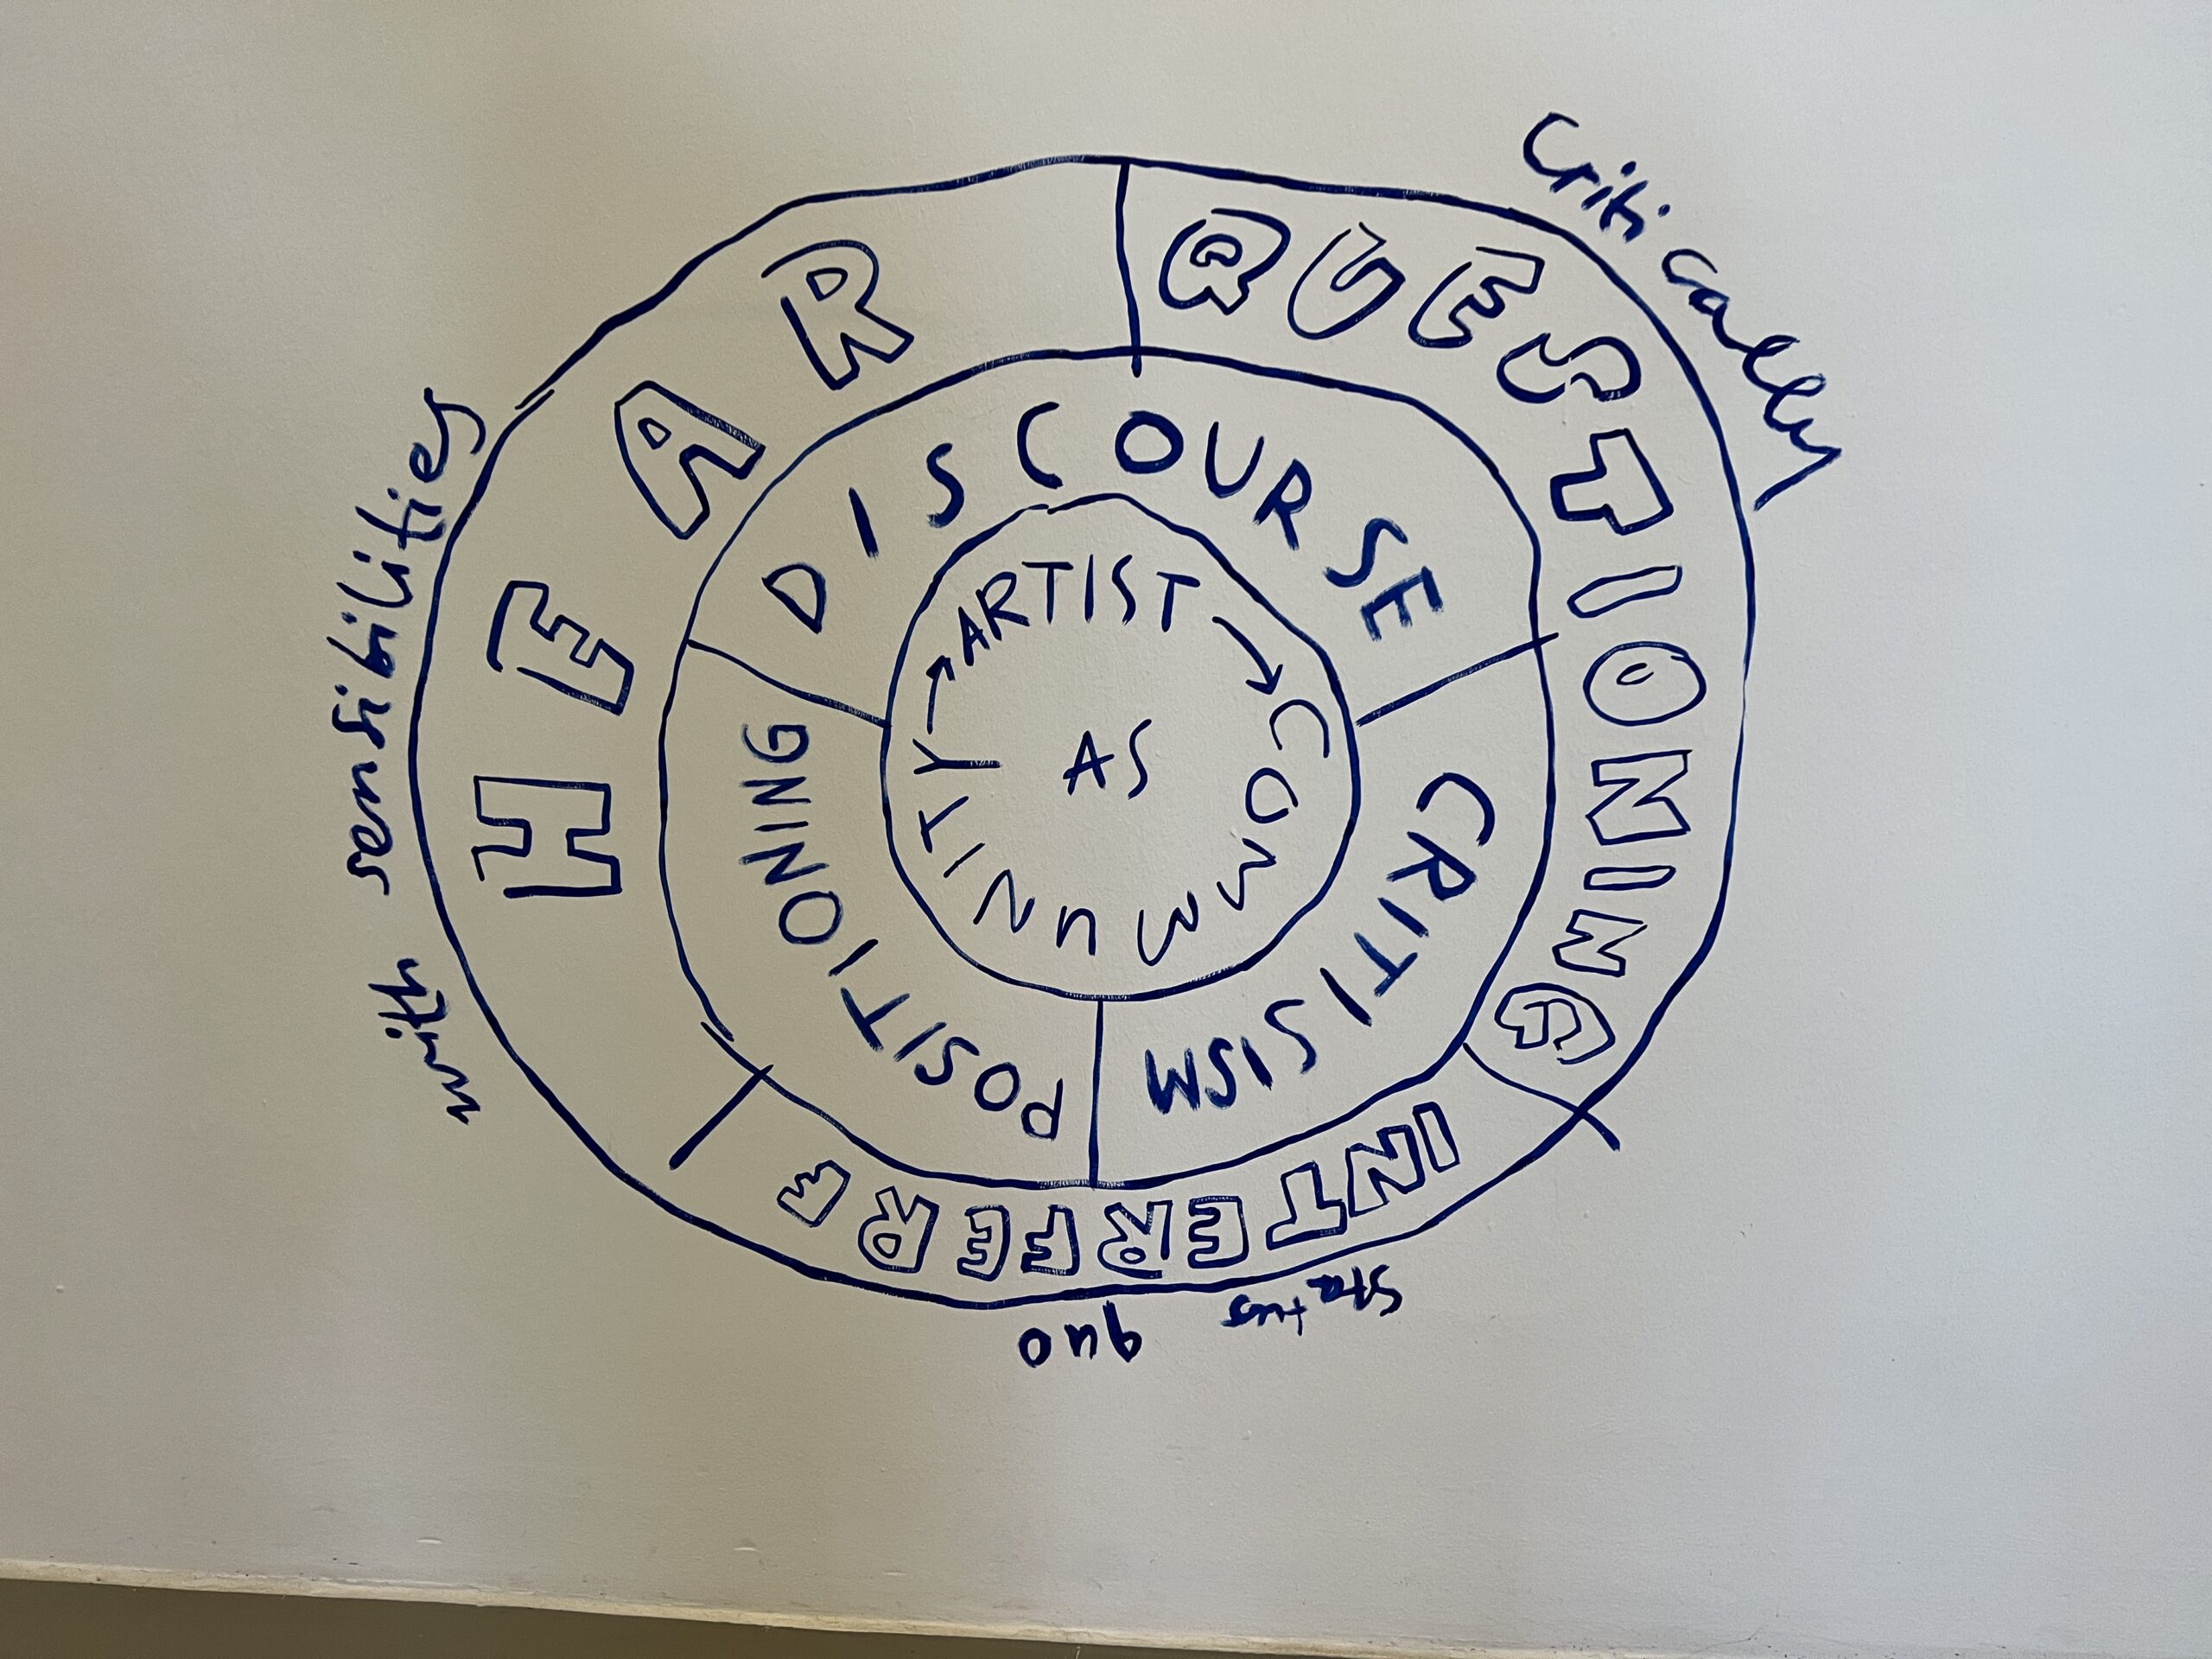 ARTIST
COMMUNITY
AS
DISCOURSE
CRITISISM
POSITIONING
HEAR
QUESTIONING
INTERFERE
with sensibilities
Critically
status quo